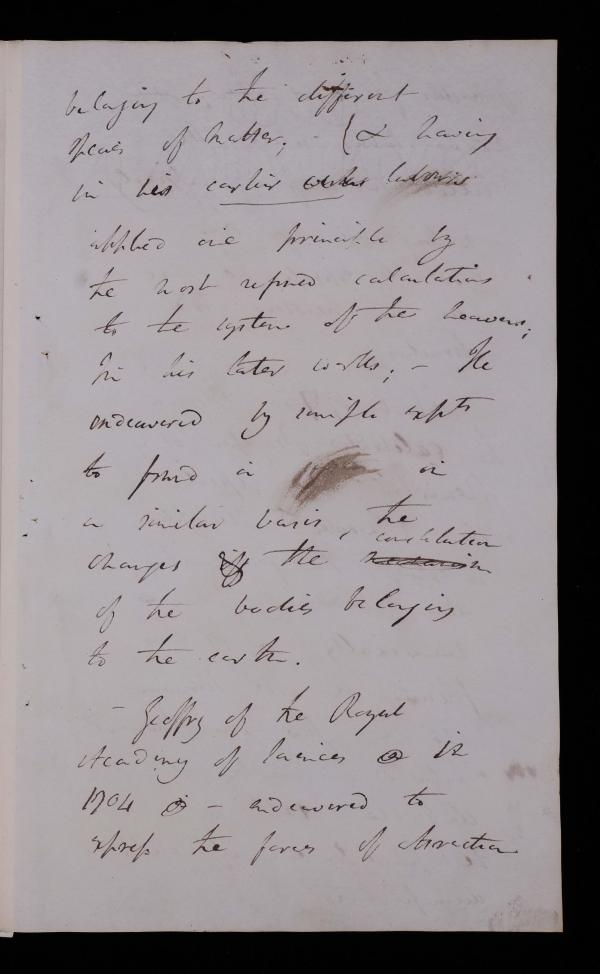 belonging to the different
species of matter; (& having
in his earlier works labours
applied one principle by
the most refined calculations
to the system of the heavens;
In his later works; – He
endeavored by simple expts
to found on
a similar basis, the
constitution
changes of the mechanism
of the bodies belonging
to the earth.
– Geoffroy of the Royal
Academy of Sciences in
1704 – endeavored to
express the forces of attraction